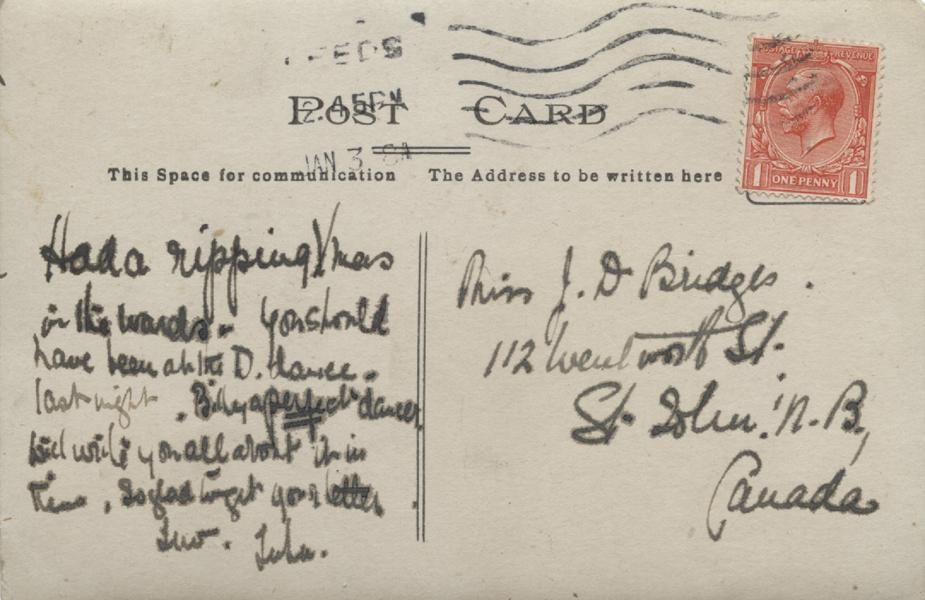 EEDS
2 45PM
JAN 3
POST CARD
This Space for communication
The Address to be written here
POSTAGE REVENUE
1 ONE PENNY 1
Had a ripping Xmas
in the wards. You should
have been at the D. dance
last night. Billy a perfect dancer
will write you all about it in
time. So glad to get your letter.
Miss J. D Bridges.
112 Wentworth St.
St. John. N. B,
Canada